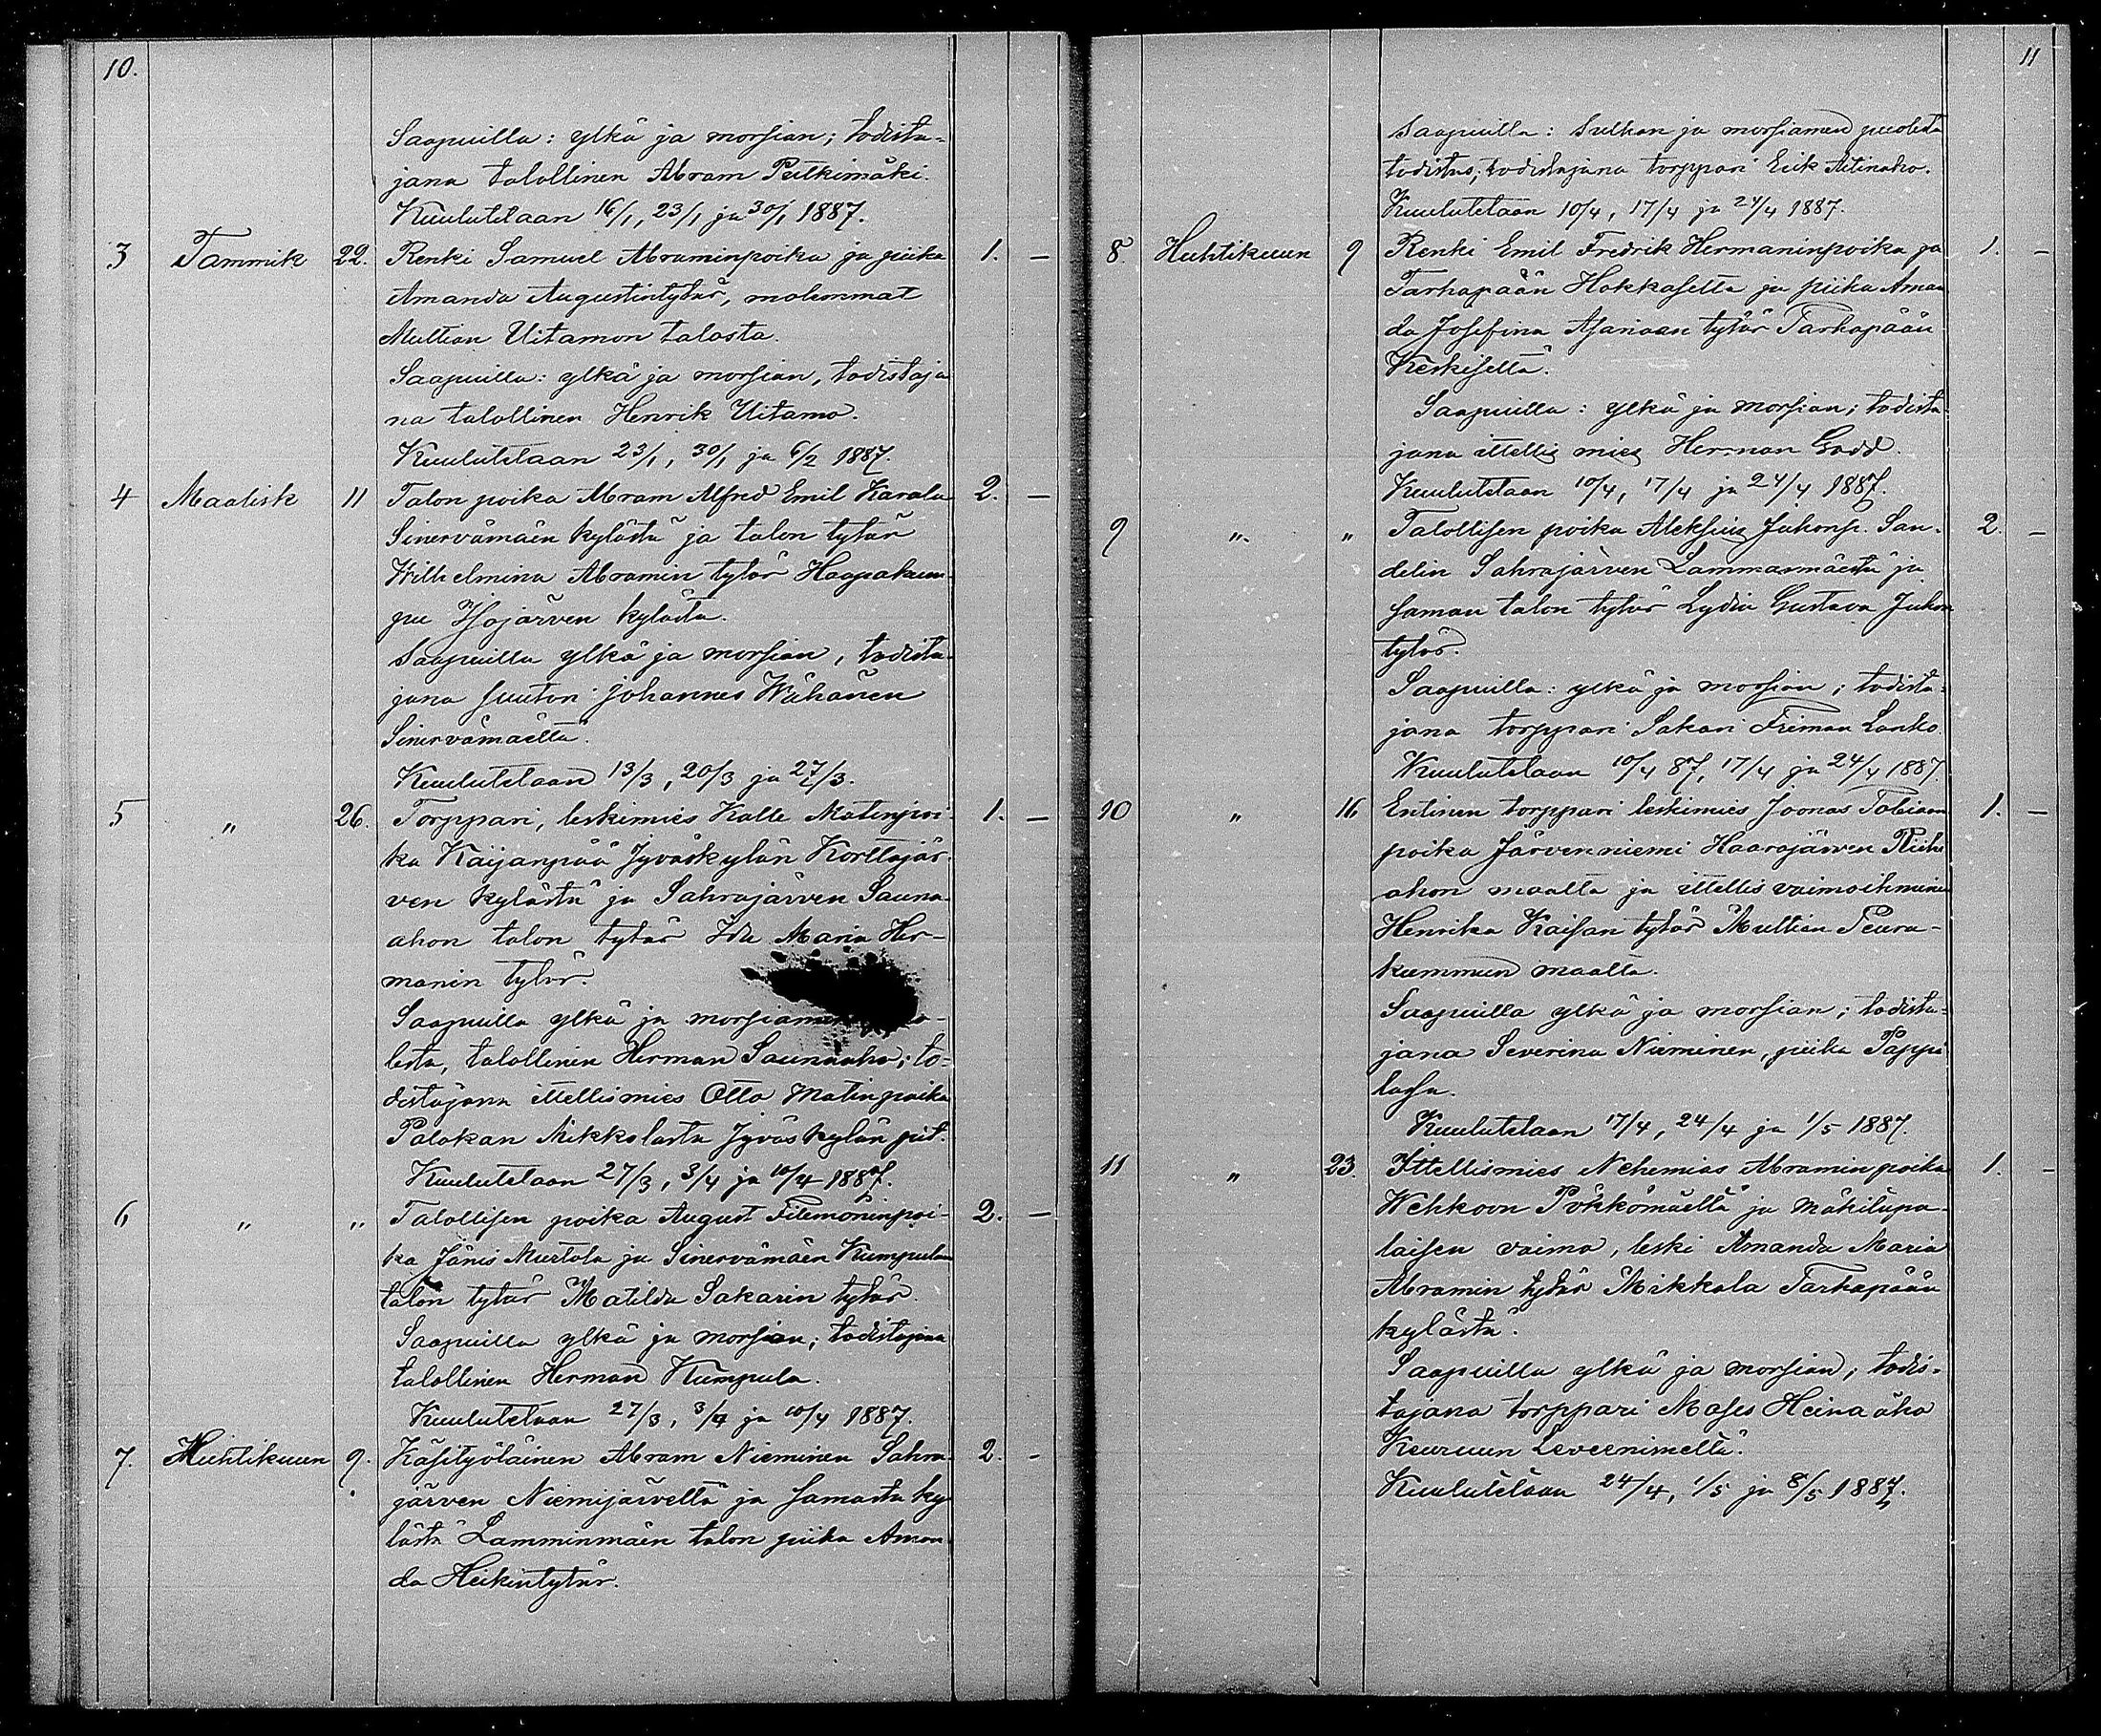 10.
Saapuilla: ylkä ja morsian; todista-
jana talollinen Abram Pitkimäki.
Kuulutetaan 16/1, 23/1 ja 30/1 1887.
3 Tammik 22. Renki Samuel Abraminpoika ja piika 1. —
Amanda Augustintytär, molemmat
Multian Uitamon talosta.
Saapuilla: ylkä ja morsian, todistaja
na talollinen Henrik Uitamo.
Kuulutetaan 23/1, 30/1 ja 6/2 1887.
4 Maalisk 11 Talon poika Abram Alfred Emil Karala 2. —
Sinervämäen kylästä ja talon tytär
Wilhelmina Abramin tytär Haapakum-
pu Isojärven kylästä.
Saapuilla ylkä ja morsian, todista-
jana suutari Johannes Wähänen
Sinervämäeltä.
Kuulutetaan 13/3, 20/3 ja 27/3.
5 " 26. Torppari, leskimies Kalle Matinpoi- 1. —
ka Kaijanpää Jyväskylän Korttajär-
ven kylästä ja Sahrajärven Sauna-
ahon talon tytär Ida Maria Her-
manin tytär.
Saapuilla ylkä ja morsiamen
lesta, talollinen Herman Saunaaho; to-
distajana ittellismies Otto Matinpoika
Palokan Mikkolasta Jyväskylän pit.
Kuulutetaan 27/3, 3/4 ja 10/4 1887.
6 " " Talollisen poika August Filemoninpoi- 2. —
ka Jänis Murtola ja Sinervämäen Kumpulan
talon tytär Matilda Sakarin tytär.
Saapuilla ylkä ja morsian; todistajana
talollinen Herman Kumpula.
Kuulutetaan 27/3, 3/4 ja 10/4 1887.
7. Huhtikuun 9. Käsityöläinen Abram Nieminen Sahra- 2. -
järven Niemijärveltä ja samasta ky-
lästä Lamminmäen talon piika Aman-
da Heikintytär.
11
Saapuilla: Sulhan ja morsiamen puolesta
todistus; todistajana torppari Erik Aitinaho.
Kuulutetaan 10/4, 17/4 ja 24/4 1887.
8. Huhtikuun 9 Renki Emil Fredrik Hermaninpoika ja 1. —
Tarhapään Hokkaselta ja piika Aman
da Josefina Asarian tytär Tarhapään
Keskiseltä.
Saapuilla: ylkä ja morsian; todista-
jana ittellis mies Herman Gadd.
Kuulutetaan 10/4, 17/4 ja 24/4 1887.
9 " " Talollisen poika Aleksius Juhonp. San- 2. —
delin Sahrajärven Lammasmäestä ja
saman talon tytär Lydia Gustava Juhon
tytär.
Saapuilla: ylkä ja morsian; todista-
jana torppari Sakari Friman Lanko
Kuulutetaan 10/4 87, 17/4 ja 24/4 1887.
10 " 16 Entinen torppari leskimies Joonas Tobiaan 1. —
poika Järvenniemi Haarajärven Riihi
ahon maalta ja ittellis vaimoihminen
Henrika Kaisan tytär Multian Peura-
kummun maalta.
Saapuilla ylkä ja morsian; todista-
jana Severina Nieminen, piika Pappi
lassa.
Kuulutetaan 17/4, 24/4 ja 1/5 1887.
11 " 23. Ittellismies Nehemias Abramin poika 1. -
Wehkoon Pökkömäeltä ja mäkitupa-
laisen vaimo, leski Amanda Maria
Abramin tytär Mikkola Tarhapään
kylästä.
Saapuilla ylkä ja morsian; todis-
tajana torppari Moses Heinaaho
Keuruun Leveeniemeltä.
Kuulutetaan 24/4, 1/5 ja 8/5 1887.